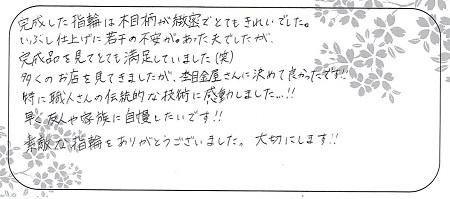 完成した指輪は木目柄が緻密でとてもきれいでした。
いぶし仕上げに若干の不安があった夫でしたが、
完成品を見てとても満足していました(笑)
多くのお店を見てきましたが、杢目金屋さんに決めて良かったです!!
特に職人さんの伝統的な技術に感動しました…!!
早く友人や家族に自慢したいです!!
素敵な指輪をありがとうございました。大切にします!!